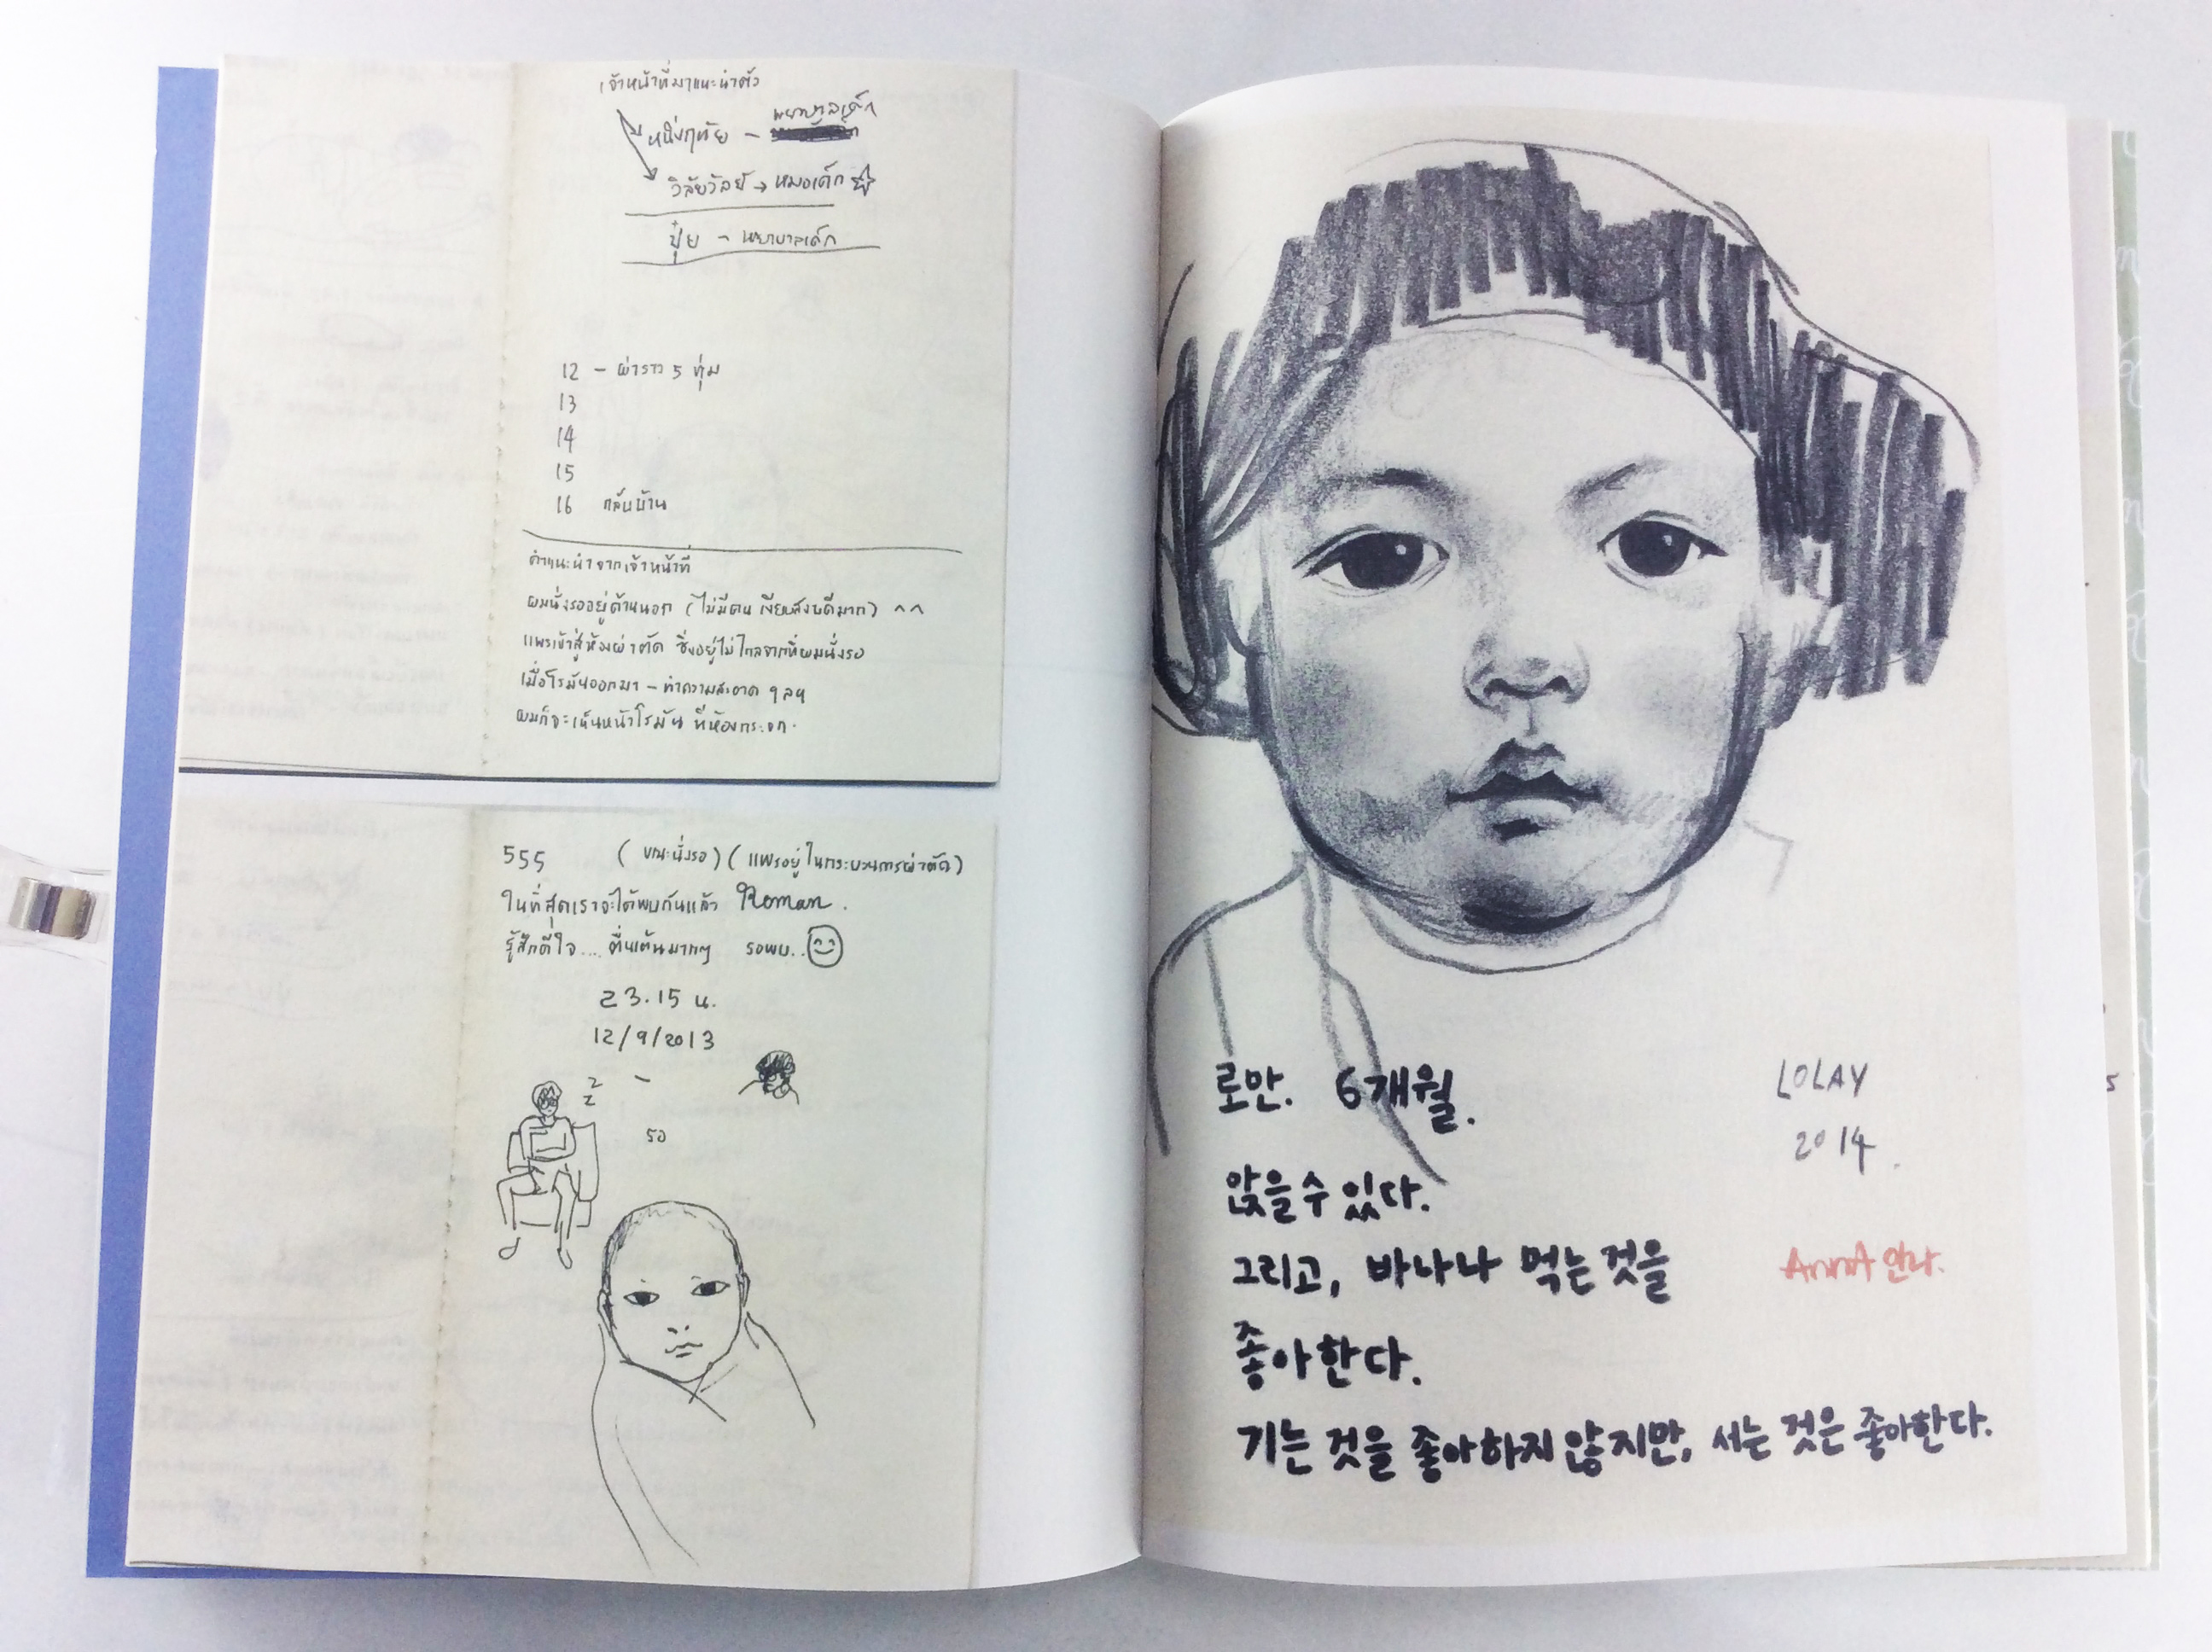 เจ้าหน้าที่มาแนะนำตัว
หนึ่งฤทัย – พยาบาลเด็ก
วิลัยวัลย์ → หมอเด็ก
ปุ๋ย – พยาบาลเด็ก
12 – ผ่าราว 5 ทุ่ม
13
14
15
16 กลับบ้าน
คำแนะนำจากเจ้าหน้าที่
ผมนั่งรออยู่ด้านนอก (ไม่มีคน เงียบสงบดีมาก) ^^
แพรเข้าสู่ห้องผ่าตัด ซึ่งอยู่ไม่ไกลจากที่ผมนั่งรอ
เมื่อโรมันออกมา – ทำความสะอาด ฯลฯ
ผมก็จะเห็นหน้าโรมัน ที่ห้องกระจก.
555 (ขณะนั่งรอ) (แพรอยู่ในกระบวนการผ่าตัด)
ในที่สุดเราจะได้พบกันแล้ว Roman.
รู้สึกดีใจ.... ตื่นเต้นมากๆ รอพบ..
23.15 น.
12/9/2013
z
z
รอ
로만. 6개월.
앉을 수 있다.
그리고, 바나나 먹는 것을
좋아한다.
기는 것을 좋아하지 않지만, 서는 것은 좋아한다.
LOLAY
2014.
AnnA 안나.